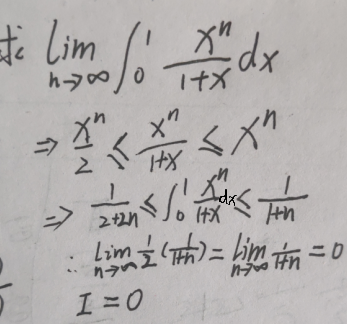 求 lim_{n→∞} ∫_0^1 x^n/(1+x) dx
⇒ x^n/2 ≤ x^n/(1+x) ≤ x^n
⇒ 1/(2+2n) ≤ ∫_0^1 x^n/(1+x) dx ≤ 1/(1+n)
∴ lim_{n→∞} 1/2 (1/(1+n)) = lim_{n→∞} 1/(1+n) = 0
I = 0